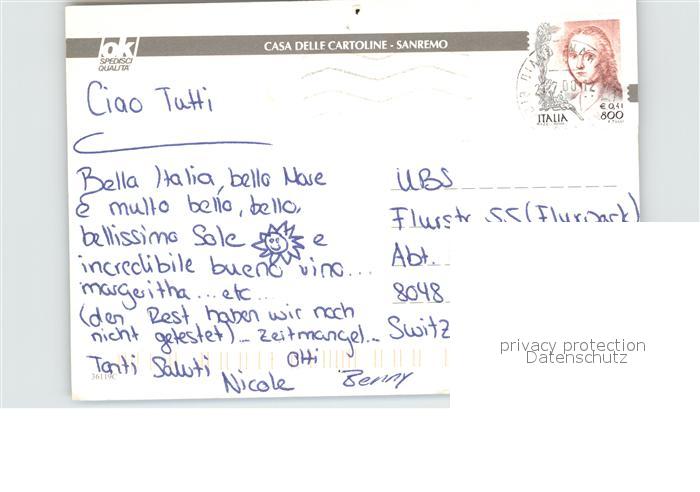 ok
SPEDISCI
QUALITÀ
CASA DELLE CARTOLINE - SANREMO
ITALIA
€ 0,41
800
Ciao Tutti
Bella Italia, bella Mare
è multo bello, bello,
bellissimo Sole e
incredibile bueno vino...
margeritha... etc...
(den Rest haben wir noch
nicht getestet)... Zeitmangel...
Tanti Saluti Otti
Nicole Benny
36119C
UBS
Flurstr. 55 (Flurpark)
Abt.
8048
Switz
privacy protection
Datenschutz